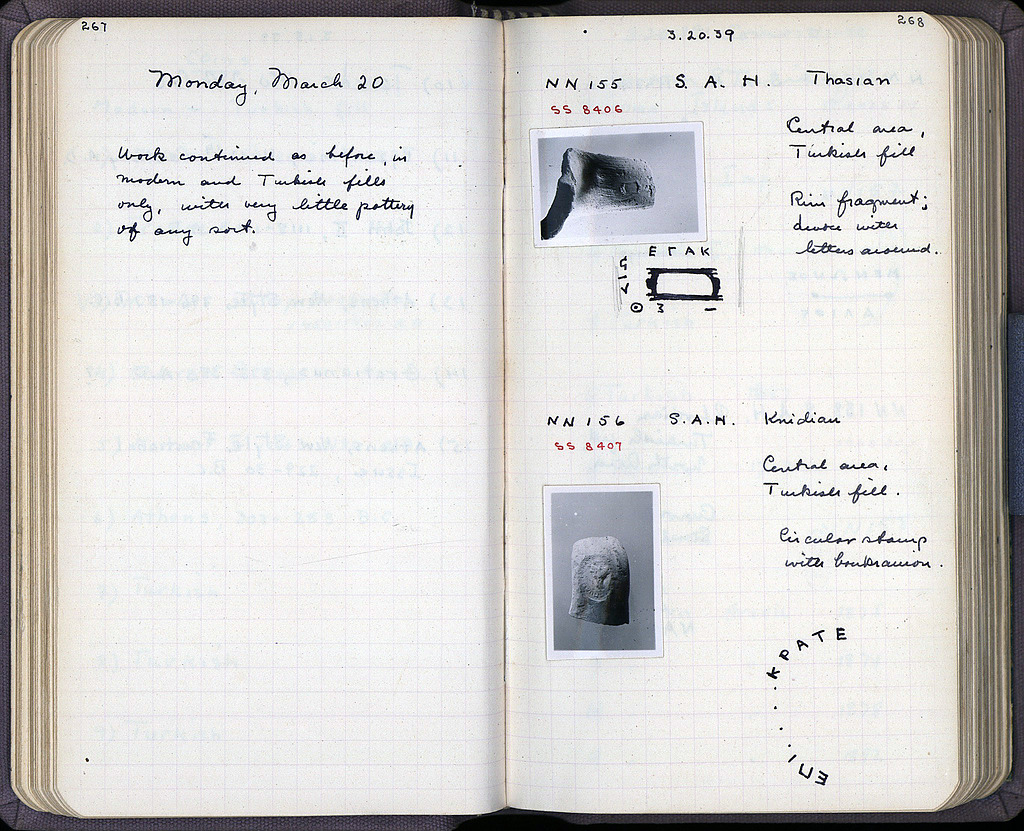 267
Monday, March 20
Work continued as before in
modern and Turkish fills
only, with very little pottery
of any sort.
268
3.20.39
NN 155 S. A. H. Thasian
SS 8406
Central area,
Turkish fill
Rim fragment;
device with
letters around.
ΕΓΑΚ
NN 156 S.A.H. Knidian
SS 8407
Central area,
Turkish fill.
Circular stamp
with boukranion.
ΕΠΙ.....ΚΡΑΤΕ